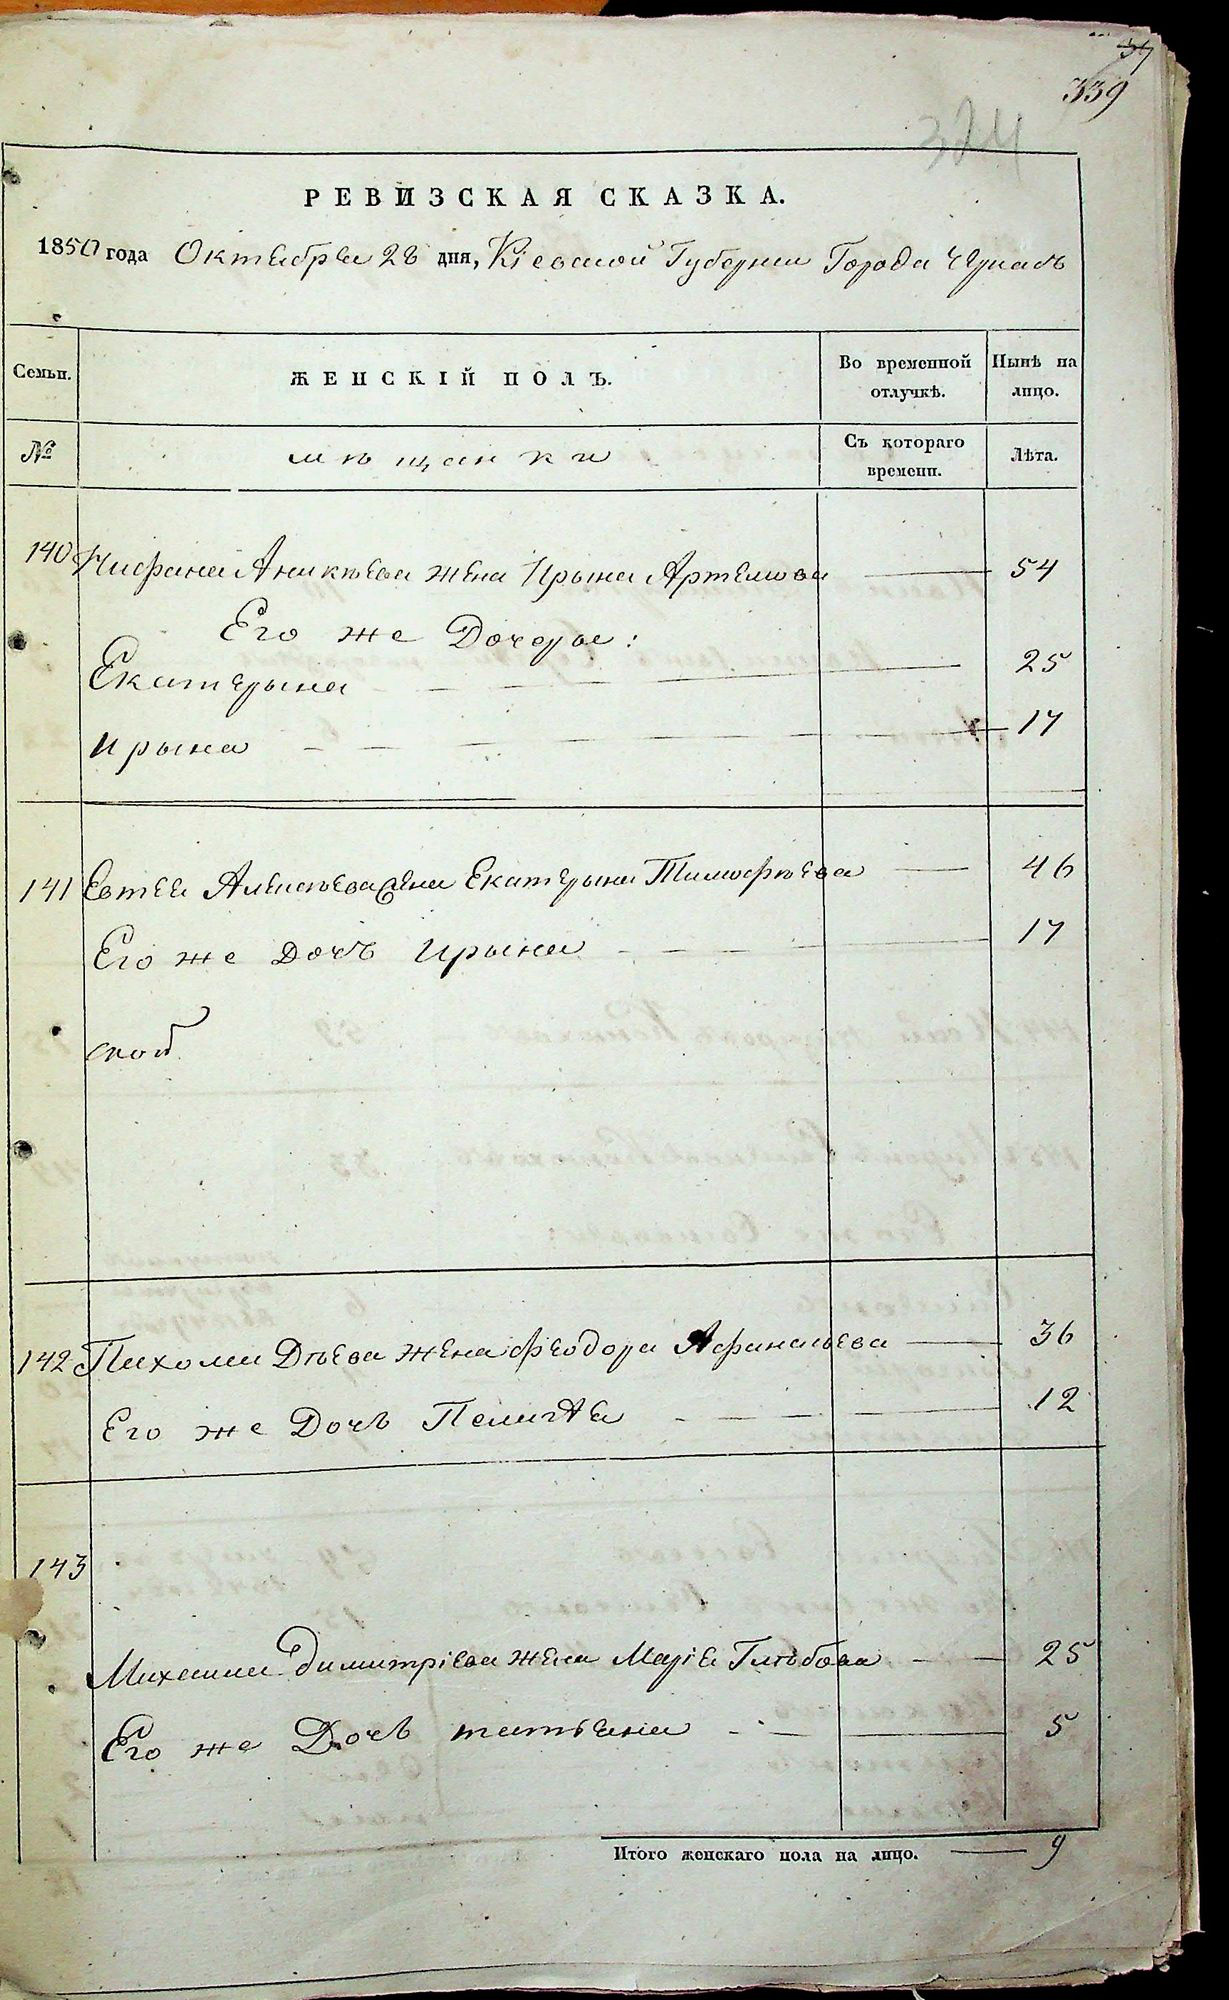 37
339
324
РЕВИЗСКАЯ СКАЗКА.
1850 года Октября 28 дня, Кіевской Губерніи Города Черкасъ
Семьи. ЖЕНСКІЙ ПОЛЪ. Во временной отлучкѣ. Нынѣ на лицо.
№ мѣщанки Съ котораго времени. Лѣта.
140 Аникѣева жена Ирына Артемова — 54
Его же Дочеры:
Екатерына — 25
Ирына — 17
141 Евтея Алексѣева Жена Екатерына Тимофѣева — 46
Его же Дочь Ирына — 17
142 Пахома Дѣева жена Феодора Афанасьева — 36
Его же Дочь Пелагея — 12
143
Михаила Димитріева жена Марія Глѣбова — 25
Его же Дочь татьяна — 5
Итого женскаго пола на лицо. — 9